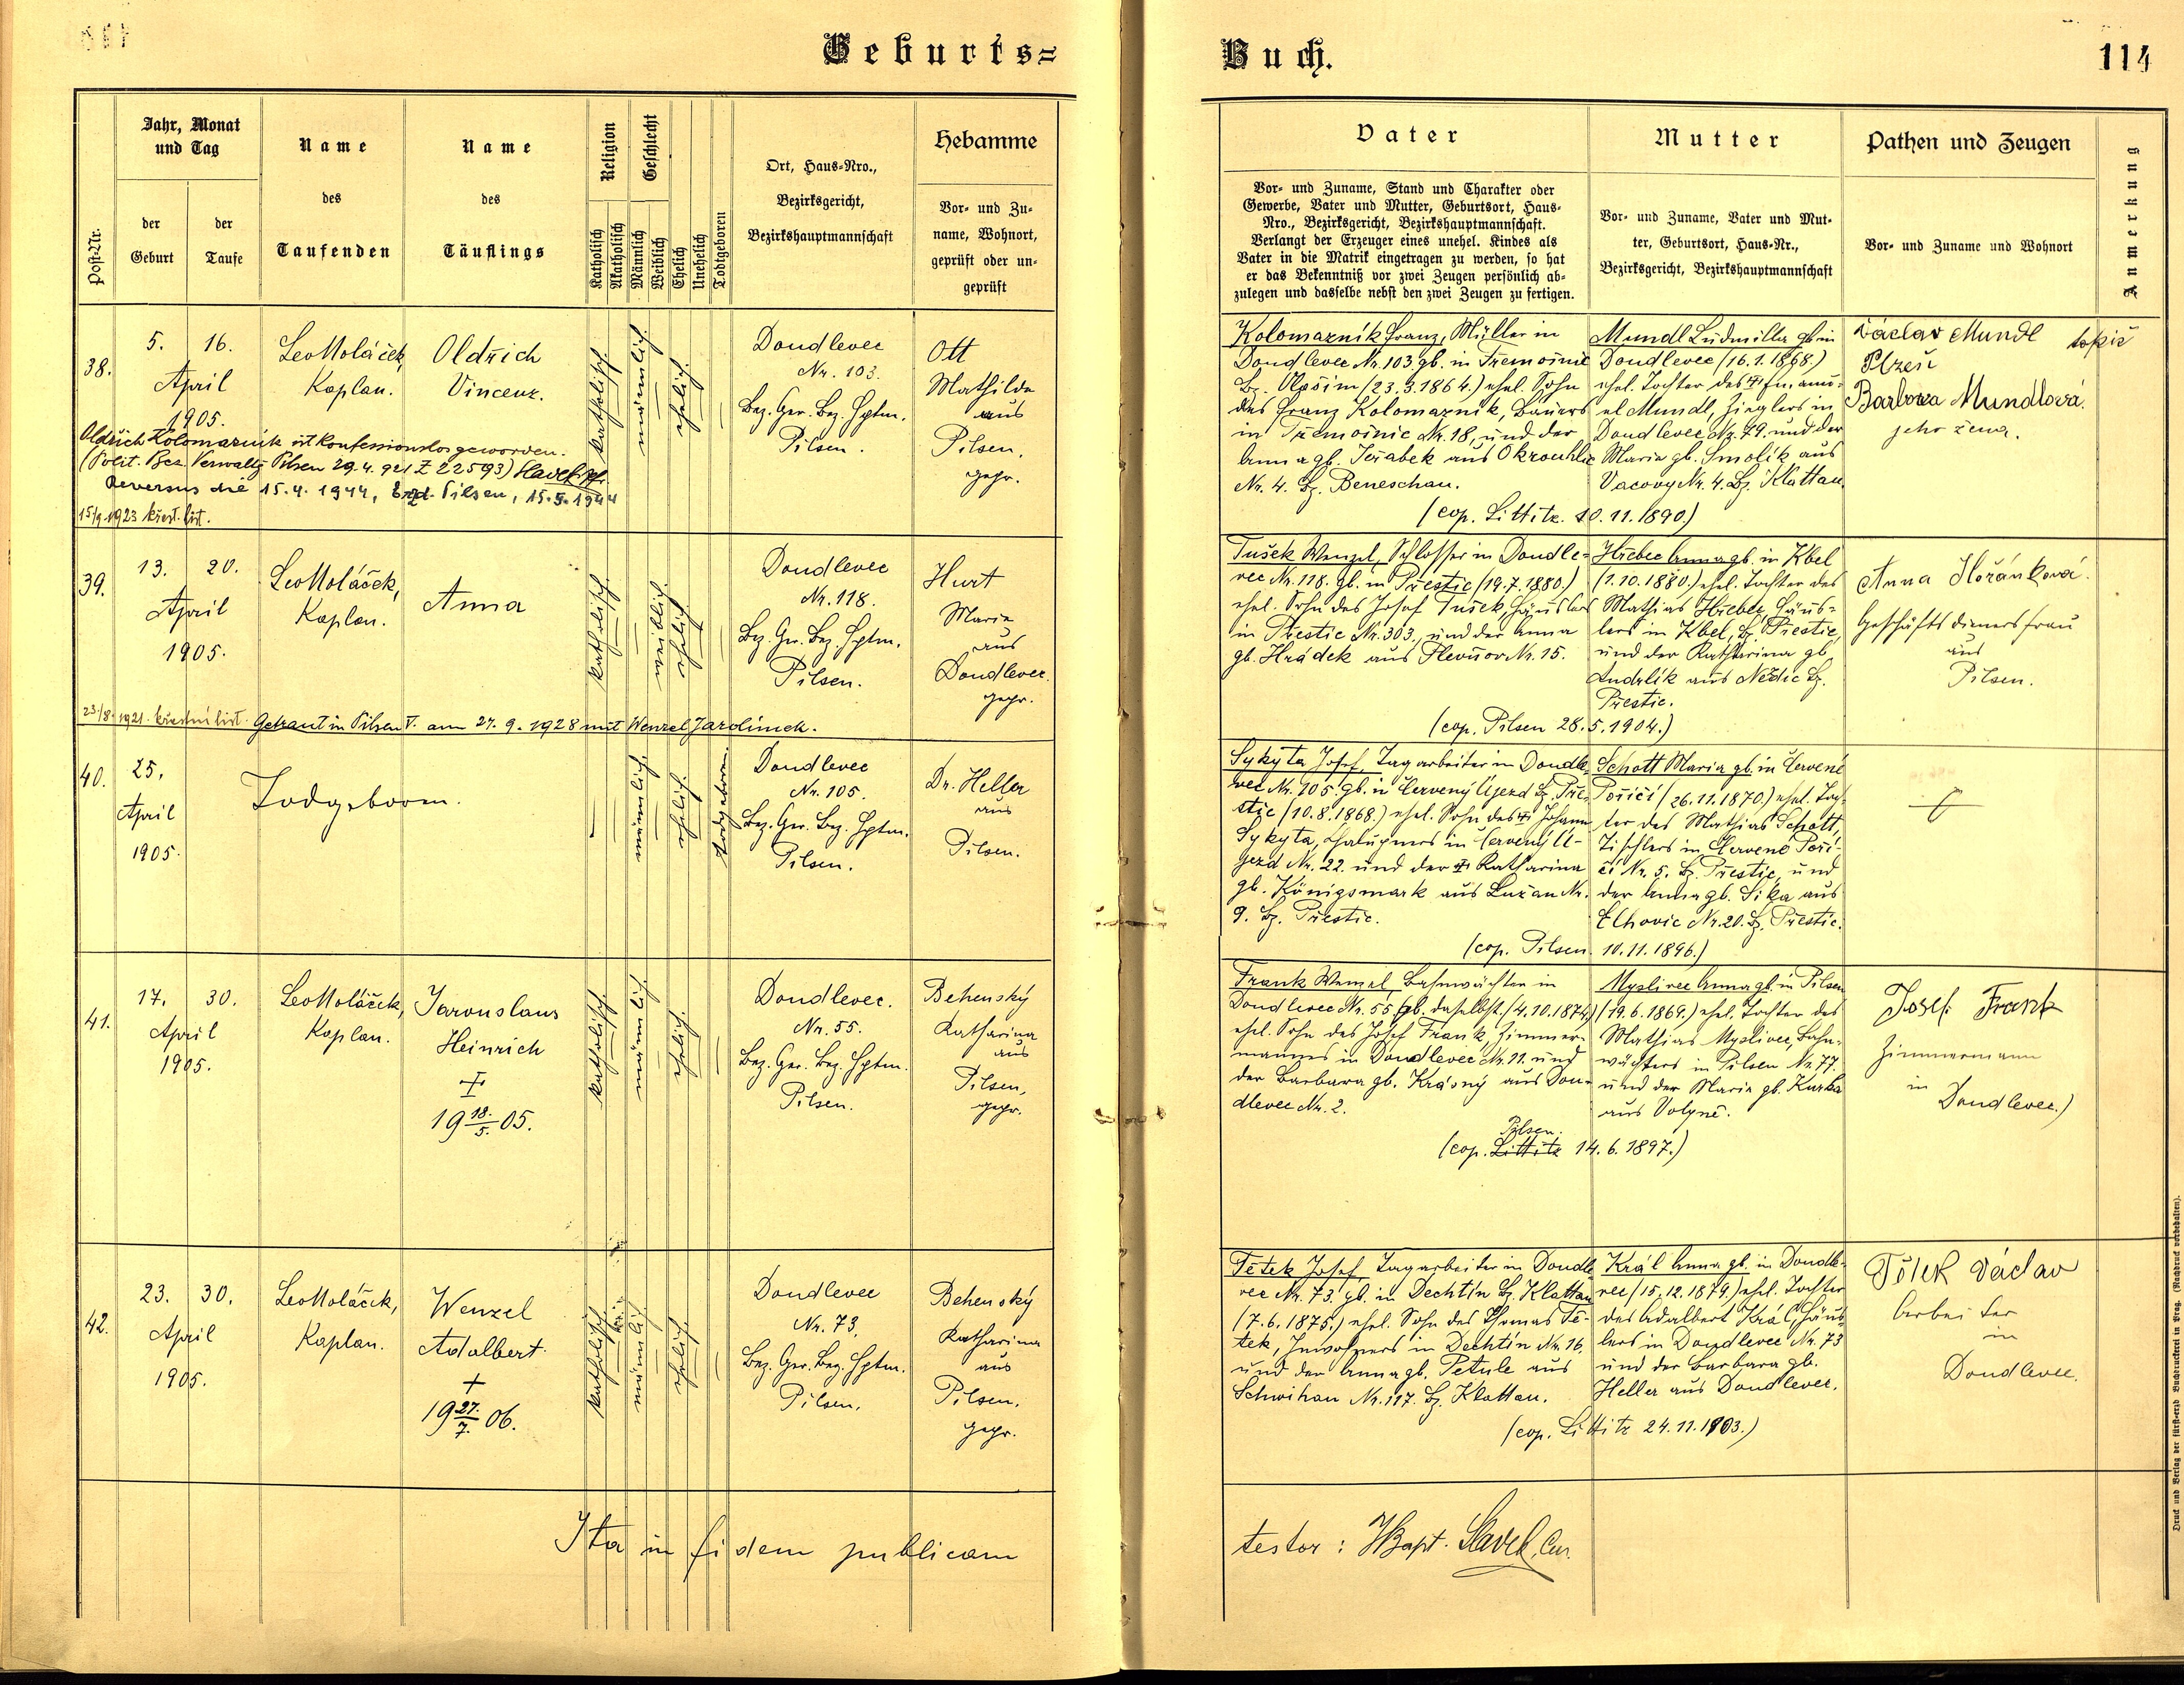 Geburts=
Buch.
114
Post-Nr.
Jahr, Monat
und Tag
der
Geburt
der
Taufe
Name
des
Taufenden
Name
des
Täuflings
Religion
Katholisch
Akatholisch
Geschlecht
Männlich
Weiblich
Ehelich
Unehelich
Todtgeboren
Ort, Haus=Nro.,
Bezirksgericht,
Bezirkshauptmannschaft
Hebamme
Vor= und Zu=
name, Wohnort,
geprüft oder un=
geprüft
Vater
Vor= und Zuname, Stand und Charakter oder
Gewerbe, Vater und Mutter, Geburtsort, Haus=
Nro., Bezirksgericht, Bezirkshauptmannschaft.
Verlangt der Erzeuger eines unehel. Kindes als
Vater in die Matrik eingetragen zu werden, so hat
er das Bekenntniß vor zwei Zeugen persönlich ab=
zulegen und dasselbe nebst den zwei Zeugen zu fertigen.
Mutter
Vor= und Zuname, Vater und Mut=
ter, Geburtsort, Haus=Nr.,
Bezirksgericht, Bezirkshauptmannschaft
Pathen und Zeugen
Vor= und Zuname und Wohnort
Anmerkung
38.
5. 16.
April
1905.
Leo Moláček,
Kaplan.
Oldřich
Vincenz.
katholisch
männlich
ehelich
Doudlevec
Nr. 103.
Bez. Ger. Bez. Hptm.
Pilsen.
Ott
Mathilde
aus
Pilsen,
gepr.
Oldřich Kolomazník ist konfessionslos geworden.
(Polit. Bez. Verwaltg Pilsen 29.4.921 Z 22593) Havel. Pf.
Reversus die 15.4.1944, Erzd. Pilsen, 15.5.1944
15/9 1923 křest. list.
Kolomazník Franz, Müller in
Doudlevec Nr. 103 gb. in Třemošnic
Bz. Vlašim (23.3.1864.) ehel. Sohn
des Franz Kolomazník, Bauers
in Třemošnic Nr. 18, und der
Anna gb. Jeřabek aus Okrouhlic
Nr. 4. Bz. Beneschau.
Mundl Ludmilla gb. in
Doudlevec (16.1.1868)
ehel. Tochter des
el Mundl, Zieglers in
Doudlevec Nr. 79. und der
Maria gb. Smolík aus
Vacovy Nr. 4. Bz. Klattau
(cop. Littitz. 10.11.1890.)
Václav Mundl topič
Plzeň
Barbora Mundlová.
jeho žena.
39.
13. 20.
April
1905.
Leo Moláček,
Kaplan.
Anna
katholisch
weiblich
ehelich
Doudlevec
Nr. 118.
Bez. Ger. Bez. Hptm.
Pilsen.
Hurt
Maria
aus
Doudlevec.
gepr.
23/8. 1921. křestní list. Getraut in Pilsen V. am 27.9.1928 mit Wenzel Jarolímek.
Tušek Wenzel, Schlosser in Doudle-
vec Nr. 118. gb. in Přestic (19.7.1880.)
ehel. Sohn des Josef Tušek, Häuslers
in Přestic Nr. 303., und der Anna
gb. Hrádek aus Plevňov Nr. 15.
Hřebec Anna gb. in Kbel
(1.10.1880.) ehel. Tochter des
Mathias Hřebec, Häus-
lers in Kbel, Bz. Přestic,
und der Katharina gb.
Andrlík aus Nezdic Bz.
Přestic.
(cop. Pilsen 28.5.1904.)
Anna Hořánková.
Geschäftsdienersfrau
aus
Pilsen.
40.
25.
April
1905.
Todgeboren.
männlich
ehelich
todgeboren
Doudlevec
Nr. 105.
Bez. Ger. Bez. Hptm.
Pilsen.
Dr. Heller
aus
Pilsen.
Sykyta Josef, Tagarbeiter in Doudle-
vec Nr. 105. gb. in Červený Újezd Bz. Pře-
štic (10.8.1868.) ehel. Sohn des † Johann
Sykyta, Chalupners in Červený Ú-
jezd Nr. 22. und der † Katharina
gb. Königsmark aus Lužan Nr.
9. Bz. Přestic.
Schott Maria gb. in Červené
Poříčí (26.11.1870.) ehel. Toch-
ter des Mathias Schott,
Tischlers in Červené Poří-
čí Nr. 5. Bz. Přestic, und
der Anna gb. Sika aus
Elhovic Nr. 20. Bz. Přestic.
(cop. Pilsen. 10.11.1896.)
41.
17. 30.
April
1905.
Leo Moláček,
Kaplan.
Jaronslaus
Heinrich
†
19 18./5. 05.
katholisch
männlich
ehelich
Doudlevec.
Nr. 55.
Bez. Ger. Bez. Hptm.
Pilsen.
Behenský
Katharina
aus
Pilsen,
gepr.
Frank Wenzel, Bahnwächter in
Doudlevec Nr. 55. gb. daselbst. (4.10.1874)
ehel. Sohn des Josef Frank, Zimmer-
mannes in Doudlevec Nr. 11. und
der Barbara gb. Krásný aus Dou-
dlevec Nr. 2.
Myslivec Anna gb. in Pilsen
(19.6.1869.) ehel. Tochter des
Mathias Myslivec, Bahn-
wächters in Pilsen Nr. 77.
und der Maria gb. Kurka
aus Volyně.
Pilsen.
(cop. Littitz 14.6.1897.)
Josef Frank
Zimmermann
in
Doudlevec.)
42.
23. 30.
April
1905.
Leo Moláček,
Kaplan.
Wenzel
Adalbert.
+
19 27./7. 06.
katholisch
männlich
ehelich
Doudlevec
Nr. 73.
Bez. Ger. Bez. Hptm.
Pilsen.
Behenský
Katharina
aus
Pilsen.
gepr.
Tětek Josef, Tagarbeiter in Doudle-
vec Nr. 73. gb. in Dechtín Bz. Klattau
(7.6.1875.) ehel. Sohn des Thomas Tě-
tek, Inwohners in Dechtín Nr. 16.
und der Anna gb. Petule aus
Schwihau Nr. 117. Bz. Klattau.
Král Anna gb. in Doudle-
vec (15.12.1879.) ehel. Tochter
des Adalbert Král, Häus-
lers in Doudlevec Nr. 73
und der Barbara gb.
Heller aus Doudlevec.
(cop. Littitz 24.11.1903.)
Václav
Arbeiter
in
Doudlevec.
Ita in fidem publicam
testor: JBapt. Havel, Cur.
Druck und Verlag der fürst-erzb Buchdruckerei in Prag. (Nachdruck vorbehalten).